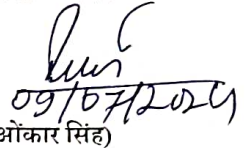 09/07/2024
ओंकार सिंह)